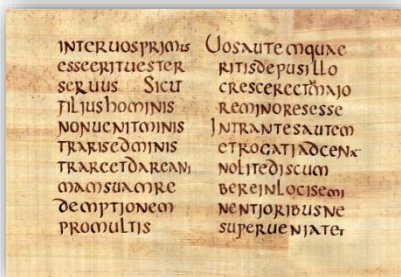 INTERUOSPRIMIS
ESSEERITUESTER
SERUUS SICUT
FILIUSHOMINIS
NONUENITMINIS
TRARISEDMINIS
TRAREETDAREANI
MAMSUAMRE
DEMPTIONEM
PROMULTIS
UOSAUTEMQUAE
RITISDEPUSILLO
CRESCEREETMAIO
REMINORESESSE
INTRANTESAUTEM
ETROGATIADCENA
NOLITEDISCUM
BEREINLOCISEMI
NENTIORIBUSNE
SUPERUENIATET